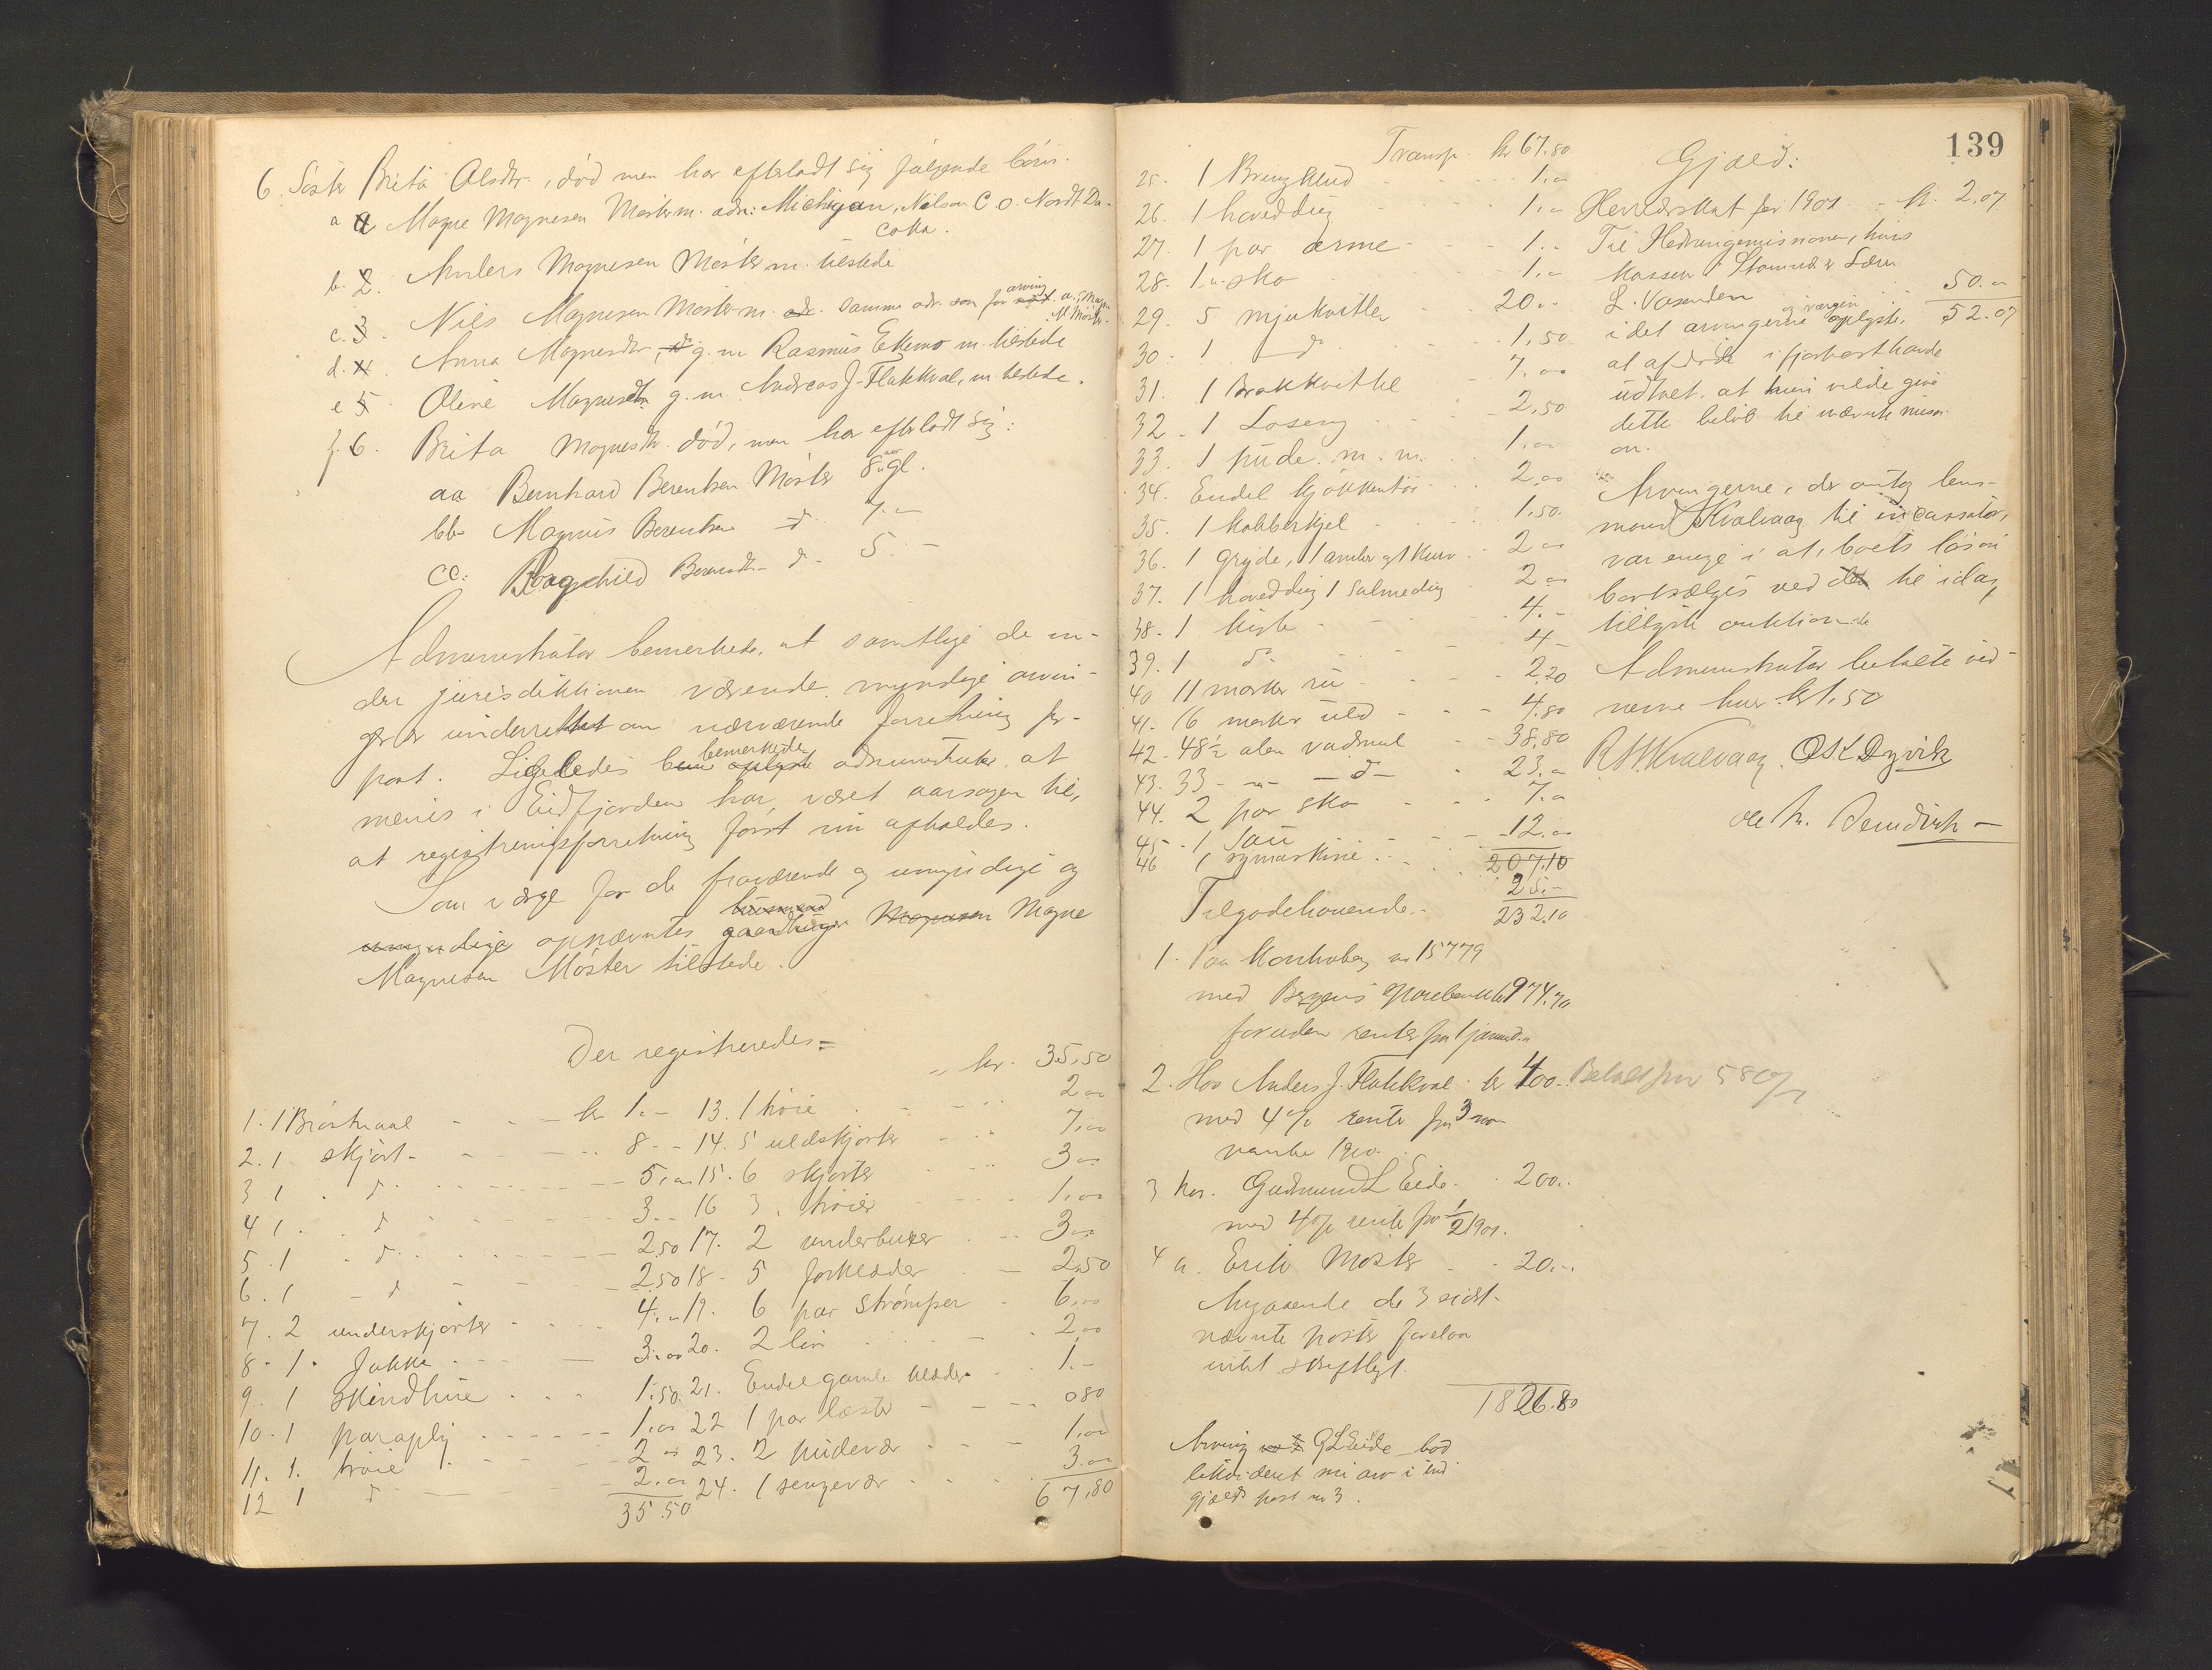 6. Søster Brita Olsdtr., død men har efterladt sig følgende børn.
a Magne Magnesen Møster m. adr: Michigan, Nelson C.O. Nordt Da-
cota.
b. 2. Anders Magnesen Møster m. tilstede
c. 3. Nils Magnesen Møster m. adr. samme adr. som for arving a, Magne
M Møster.
d. 4. Anna Magnesdtr, g. m Rasmus Ekemo m. tilstede
e 5 Oline Magnesdtr g. m. Andreas J. Flatekval, m. tilstede.
f. 6. Brita Magnesdtr. død, men har efterladt sig:
aa Bernhard Berentsen Møster 8 aar gl.
bb Magnus Berentsen d. 7 "
cc: Borghild Berentsdtr d. 5. "
Administrator bemerkede, at samtlige de in-
den jurisdiktionen værende myndige arvin-
ger er underrettet om nærværende forretning for-
post. Ligeledes bemerkede oplyste administrator, at
menis i Eidfjorden har været aarsagen til,
at registreringsforretning først nu afholdes.
Som værge for de fraværende og umyndige og
umyndige opnævntes husmand gaardbruger Magnesen Magne
Magnesen Møster tilstede.
Der registreredes:
" kr. 35,50
1. 1 Bröstnaal - - kr 1.- 13. 1 trøie 2.00
2. 1 skjørt - - 8.- 14. 5 uldskjorter 7.00
3 1 . d. - - 5,00 15. 6 skjorter 3.00
4 1 . d - - 3.- 16 3 . trøier 1,00
5. 1 . d. - - 2.50 17. 2 underbuxer 3.00
6. 1 - d - - 2.50 18. 5 forklæder 2,50
7. 2 underskjorter - - 4.- 19. 6 par strømper 6,00
8. 1. Jakke - - 3.00 20. 2 lin 2,00
9. 1 skindhue - - 1.50. 21. Endel gamle klæder 1.-
10. 1 paraply - - 1,00 22 1 par læster 0 80
11. 1. trøie - - 2.00 23. 2 pudevær 1,00
12 1 d - - 2.00 24. 1 sengevær 3.00
35.50
67,80
139
Transp. kr 67.80
25. 1 Brugklud - - 1,00
26. 1 haveddug - - 1,-
27. 1 par ærme - - 1.-
28. 1 " sko - - 1,-
29. 5 mjukvitler 20.-
30. 1 d - - 1,50
31. 1 Brokkvitle - - 7.00
32. 1 Loseng - - 2,50
33. 1 pude m. m. - - 1,00
34. Endel kjøkkentøi - - 2,00
35. 1 kobberkjel - - 1,50.
36. 1 gryde, 1 ambar og 1 kurv - 2.00
37. 1 haveddug 1 salmedug - 2.00
38. 1 kiste - - 4.-
39. 1 d. - - 4.-
40 11 marker ru - - 2,20
41. 16 marker uld - - 4,80
42. 48½ alen vadmel - - 38,80
43. 33 - " - d - 23.-
44. 2 par sko - - 7.-
45. 1 sau - - 12.00
46 1 symaskine - - 207.10
25.-
232.10
Tilgodehavende.
1. Paa Kontrabog no 15779
med Bergens Sparebank kr 974.70
foruden renter fra 1 januar d.a
2. Hos Anders J. Flatekval kr 400. Betalt fra 5 80/1
med 4% rente fra 3 no-
vember 1900.
3 hos. Gudmund L Eide. - 200..
med 4% rente fra ½ 1901.
4 a. Erik Møster - - 20.-
Angaaende de 3 sidst-
nævnte poster forelaa
intet skriftligt.
1826.80
Arving G L Eide bad
likvideret sin arv i sin
gjæld post no 3.
Gjæld:
Herredsskat for 1901 - kr. 2,07
Til Hedningemissionen, hvis
kasserer Stamnes er Lærer
L. Vasenden - - 50.00
52.07
i det arvingerne og værgen oplyste,
at afdøde i fjorhøst havde
udtalt, at hun vilde give
dette beløb til nævnte missi-
on.
Arvingerne, der antog lens-
mand Kvalvaag til incassator,
var enige i at boets løsøre
bortsælges ved den til idag
tillyste auktion.
Administrator betalte vid-
nerne hver kr 1.50
R H Kvalvaag. O S L Dyvik